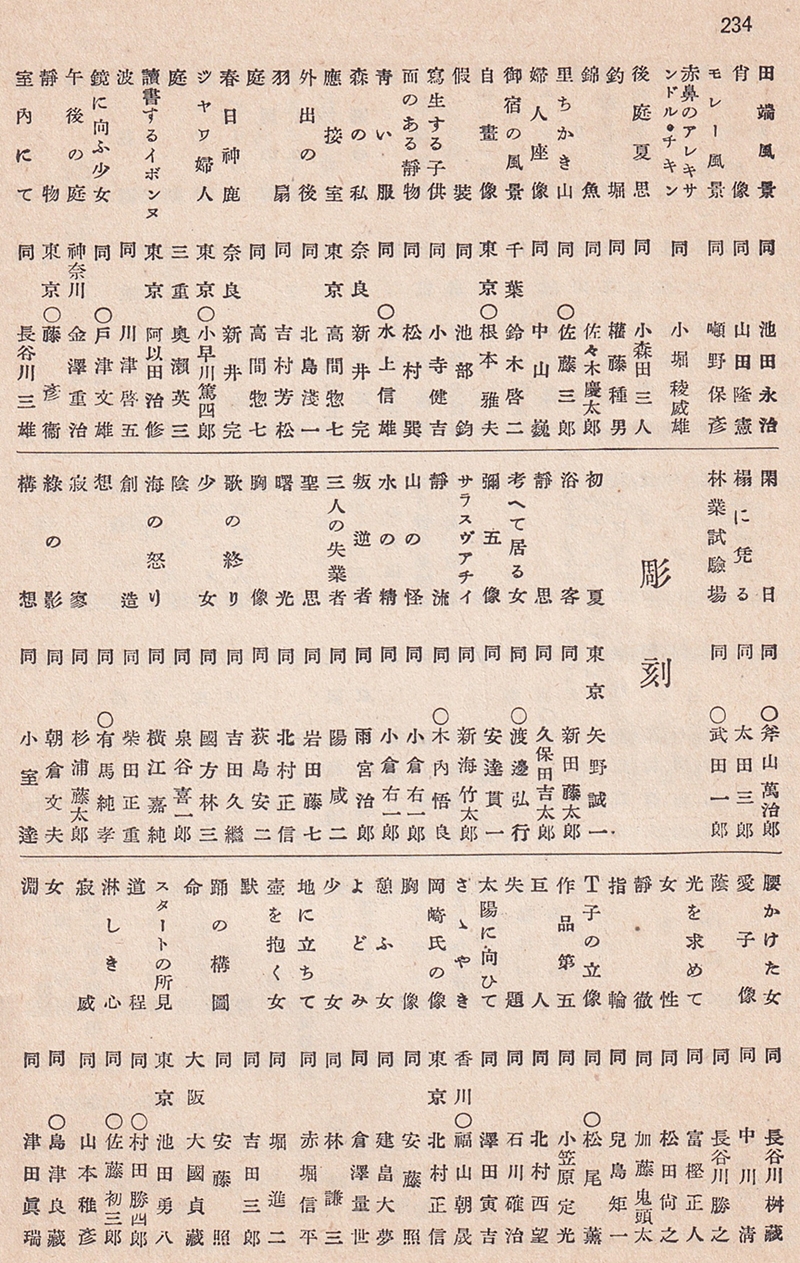 234
田端風景 同 池田永治
肖像 同 山田隆憲
モレー風景 同 𡸴野保彦
赤鼻のアレキサンドル・チキン 同 小堀稜威雄
後庭夏思 同 小森田三人
釣堀 同 權藤種男
錦魚 同 佐々木慶太郎
里ちかき山 同 〇佐藤三郎
婦人座像 同 中山巍
御宿の風景 千葉 鈴木啓二
自畫像 東京 〇根本雅夫
假裝 同 池部鈞
寫生する子供 同 小寺健吉
面のある靜物 同 松村巽
青い服 同 〇水上信雄
森の私 奈良 新井完
應接室 東京 高間惣七
外出の後 同 北島淺一
羽扇 同 吉村芳松
庭 同 高間惣七
春日神鹿 奈良 新井完
ジャワ婦人 東京 〇小早川篤四郎
庭 三重 奧瀨英三
讀書するイボンヌ 東京 阿以田治修
波 同 川津啓五
鏡に向ふ少女 同 〇戸津文雄
午後の庭 神奈川 金澤重治
靜物 東京 〇藤彦衞
室内にて 同 長谷川三雄
閑日 同 〇斧山萬治郎
榻に凭る 同 太田三郎
林業試驗場 同 〇武田一郎
彫刻
初夏 東京 矢野誠一
浴客 同 新田藤太郎
靜思 同 久保田吉太郎
考へて居る女 同 〇渡邊弘行
彌五像 同 安達貫一
サラスヴアチイ 同 新海竹太郎
靜流 同 〇木内悟良
山の怪 同 小倉右一郎
水の精 同 小倉右一郎
叛逆者 同 雨宮治郎
三人の失業者 同 陽咸二
聖思 同 岩田藤七
曙光 同 北村正信
胸像 同 荻島安二
歌の終り 同 吉田久繼
少女 同 國方林三
陰 同 泉谷喜一郎
海の怒り 同 横江嘉純
創造 同 柴田正重
想 同 〇有馬純孝
寂寥 同 杉浦藤太郎
綠の影 同 朝倉文夫
構想 同 小室達
腰かけた女 同 長谷川桝藏
愛子像 同 中川清
蔭 同 長谷川勝之
光を求めて 同 富樫正人
女性 同 松田尙之
靜徹 同 加藤鬼頭太
指輪 同 兒島矩一
T子の立像 同 〇松尾薰
作品第五 同 小笠原定光
巨人 同 北村西望
失題 同 石川確治
太陽に向ひて 同 澤田寅吉
さゝやき 香川 〇福山朝晟
岡崎氏の像 東京 北村正信
胸像 同 安藤照
憩ふ女 同 建畠大夢
よどみ 同 倉澤量世
少女 同 林謙三
地に立ちて 同 赤堀信平
壺を抱く女 同 堀進二
默 同 吉田三郎
踊の構圖 同 安藤照
命 大阪 大國貞藏
スタートの所見 東京 池田勇八
道程 同 〇村田勝四郎
淋しき心 同 〇佐藤初三郎
寂寞 同 山本稚彦
女 同 〇島津良藏
淵 同 津田眞瑞